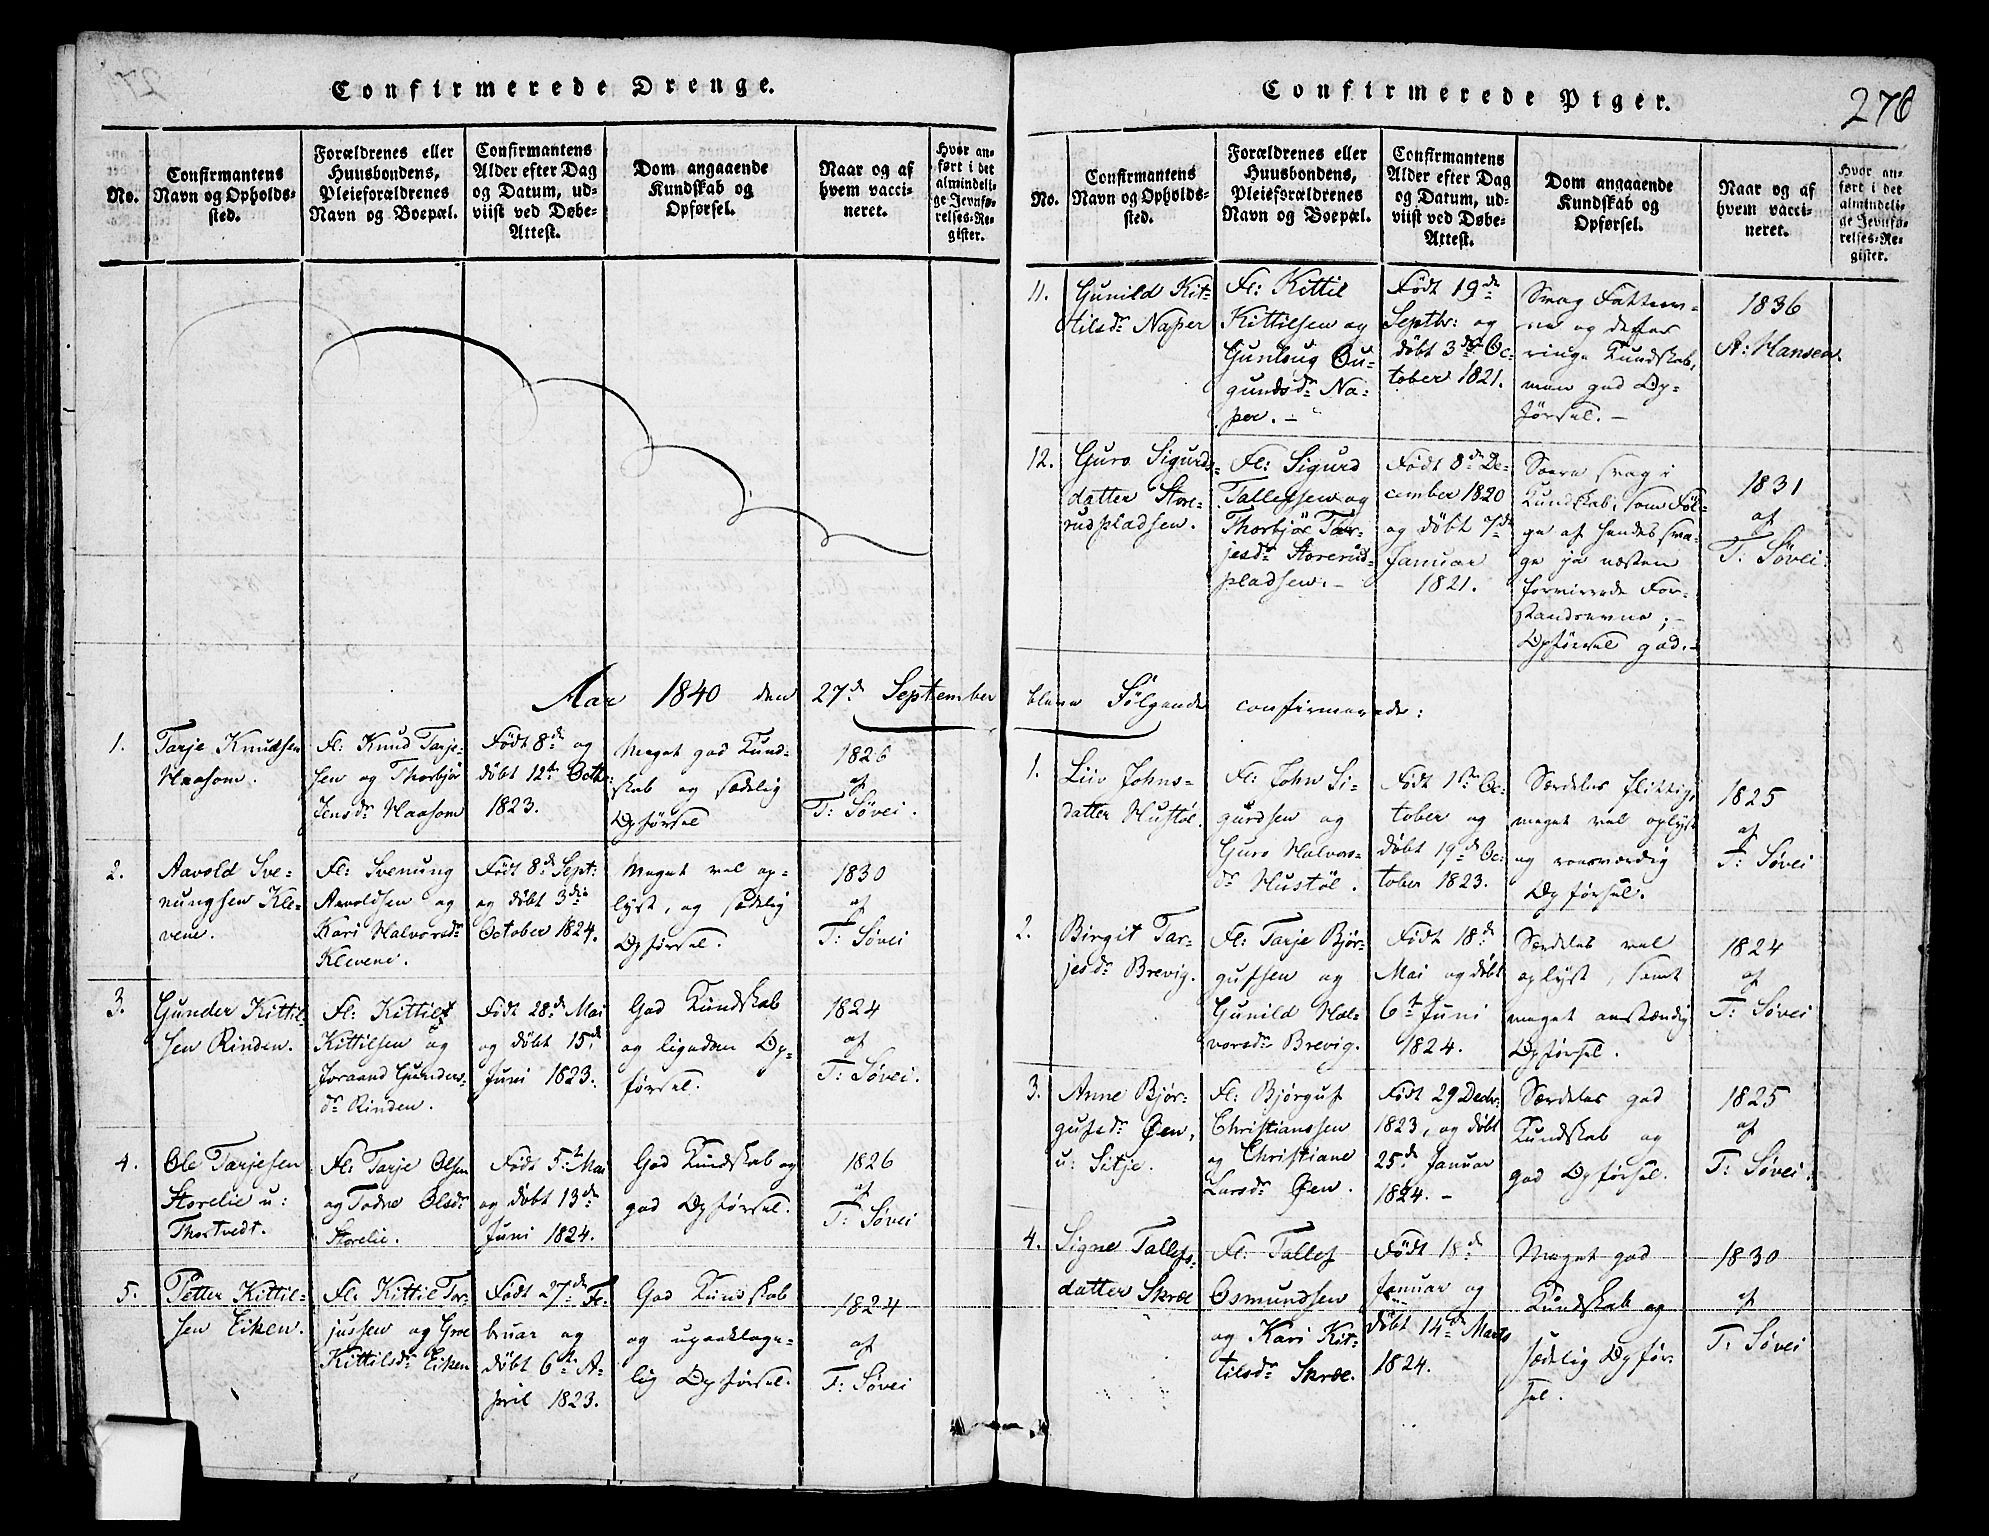 Confirmerede Drenge.
No.
Confirmantens
Navn og Opholds-
sted.
Forældrenes eller
Huusbondens,
Pleieforældrenes
Navn og Boepæl.
Confirmantens
Alder efter Dag
og Datum, ud-
viist ved Døbe-
Attest.
Dom angaaende
Kundskab og
Opførsel.
Naar og af
hvem vacci-
neret.
Hvor an-
ført i det
almindeli-
ge Jevnfø-
relses-Re-
gister.
Aar 1840 den 27de September
1.
Tarje Knudsen
Haasom.
Fl: Knud Tarje-
sen og Thorbjør
Jensdr Haasom
Født 8de og
døbt 12te Octb:
1823.
Meget god Kund-
skab og sædelig
Opførsel
1826
af
T: Søvei.
2.
Aavold Sve-
nungsen Kle-
vene.
Fl: Svenung
Aavoldsen og
Kari Halvorsdr
Klevene.
Født 8de Sept:
og døbt 3die
October 1824.
Meget vel op-
lyst, og sædelig
Opførsel.
1830
af
T: Søvei
3.
Gunder Kittil-
sen Rinden.
Fl: Kittil
Kittilsen og
Joraand Gunders-
dr Rinden.
Født 28de Mai
og døbt 15de
Juni 1823.
God Kundskab
og ligedan Op-
førsel.
1824
af
T: Søvei.
4.
Ole Tarjesen
Storelie u:
Thortvedt.
Fl: Tarje Olsen
og Todne Olsdr
Storelie.
Født 5te Mai
og døbt 13de
Juni 1824.
God Kundskab og
god Opførsel.
1826
af
T: Søvei
5.
Petter Kittil-
sen Eiken.
Fl: Kittil Tor-
jussen og Groe
Kittilsdr Eiken
Født 27de Fe-
bruar og
døbt 6te A-
pril 1823.
God Kundskab
og upaaklage-
lig Opførsel.
1824
af
T: Søvei
Confirmerede Piger.
276
No.
Confirmantens
Navn og Opholds-
sted.
Forældrenes eller
Huusbondens,
Pleieforældrenes
Navn og Boepæl.
Confirmantens
Alder efter Dag
og Datum, ud-
viist ved Døbe-
Attest.
Dom angaaende
Kundskab og
Opførsel.
Naar og af
hvem vacci-
neret.
Hvor an-
ført i det
almindeli-
ge Jevnfø-
relses-Re-
gister.
11.
Gunild Kit-
tilsdr Naper
Fl: Kittil
Kittilsen og
Gunloug Ou-
gundsdr Na-
per. -
Født 19de
Septbr: og
døbt 3die Oc-
tober 1821.
Svag Fatteev-
ne og derfor
ringe Kundskab,
men god Op-
førsel. -
1836
A: Hansen.
12.
Guro Sigurds-
datter Store-
rudpladsen.
Fl: Sigurd
Tallefsen og
Thorbjør Tar-
jesdr Storerud-
pladsen. -
Født 8de De-
cember 1820
og døbt 7de
Januar
1821.
Svag i
Kundskab, som Føl-
ge af hendes sva-
ge ja næsten
forvirrede For-
standsevne; -
Opførsel god. -
1831
af
T: Søvei.
bleve Følgende confirmerede:
1.
Liv Johns-
datter Hustøl.
Fl: John Si-
gurdsen og
Guro Halvors-
dr Hustøl.
Født 1ste Oc-
tober og
døbt 19de Oc-
tober 1823.
Særdeles flittig,
meget vel oplyst
og roesværdig
Opførsel.
1825
af
T: Søvei
2.
Birgit Tar-
jesdr Brevig.
Fl: Tarje Bjør-
gufsen og
Gunild Hal-
vorsdr Brevig.
Født 18de
Mai og døbt
6te Juni
1824.
Særdeles vel
oplyst, samt
meget anstændig
Opførsel.
1824
af
T: Søvei
3.
Anne Bjør-
gufsdr Øen,
u: Sitje.
Fl: Bjørguf
Christianssen
og Christiane
Larsdr Øen.
Født 29 Decbr:
1823, og døbt
25de Januar
1824. -
Særdeles god
Kundskab og
god Opførsel.
1825
af
T: Søvei.
4.
Signe Tallefs-
datter Skræ
Fl: Tallef
Osmundsen
og Kari Kit-
tilsdr Skræ.
Født 18de
Januar og
døbt 14de Marts
1824.
Meget god
Kundskab og
sædelig Opfør-
sel.
1830
af
T: Søvei